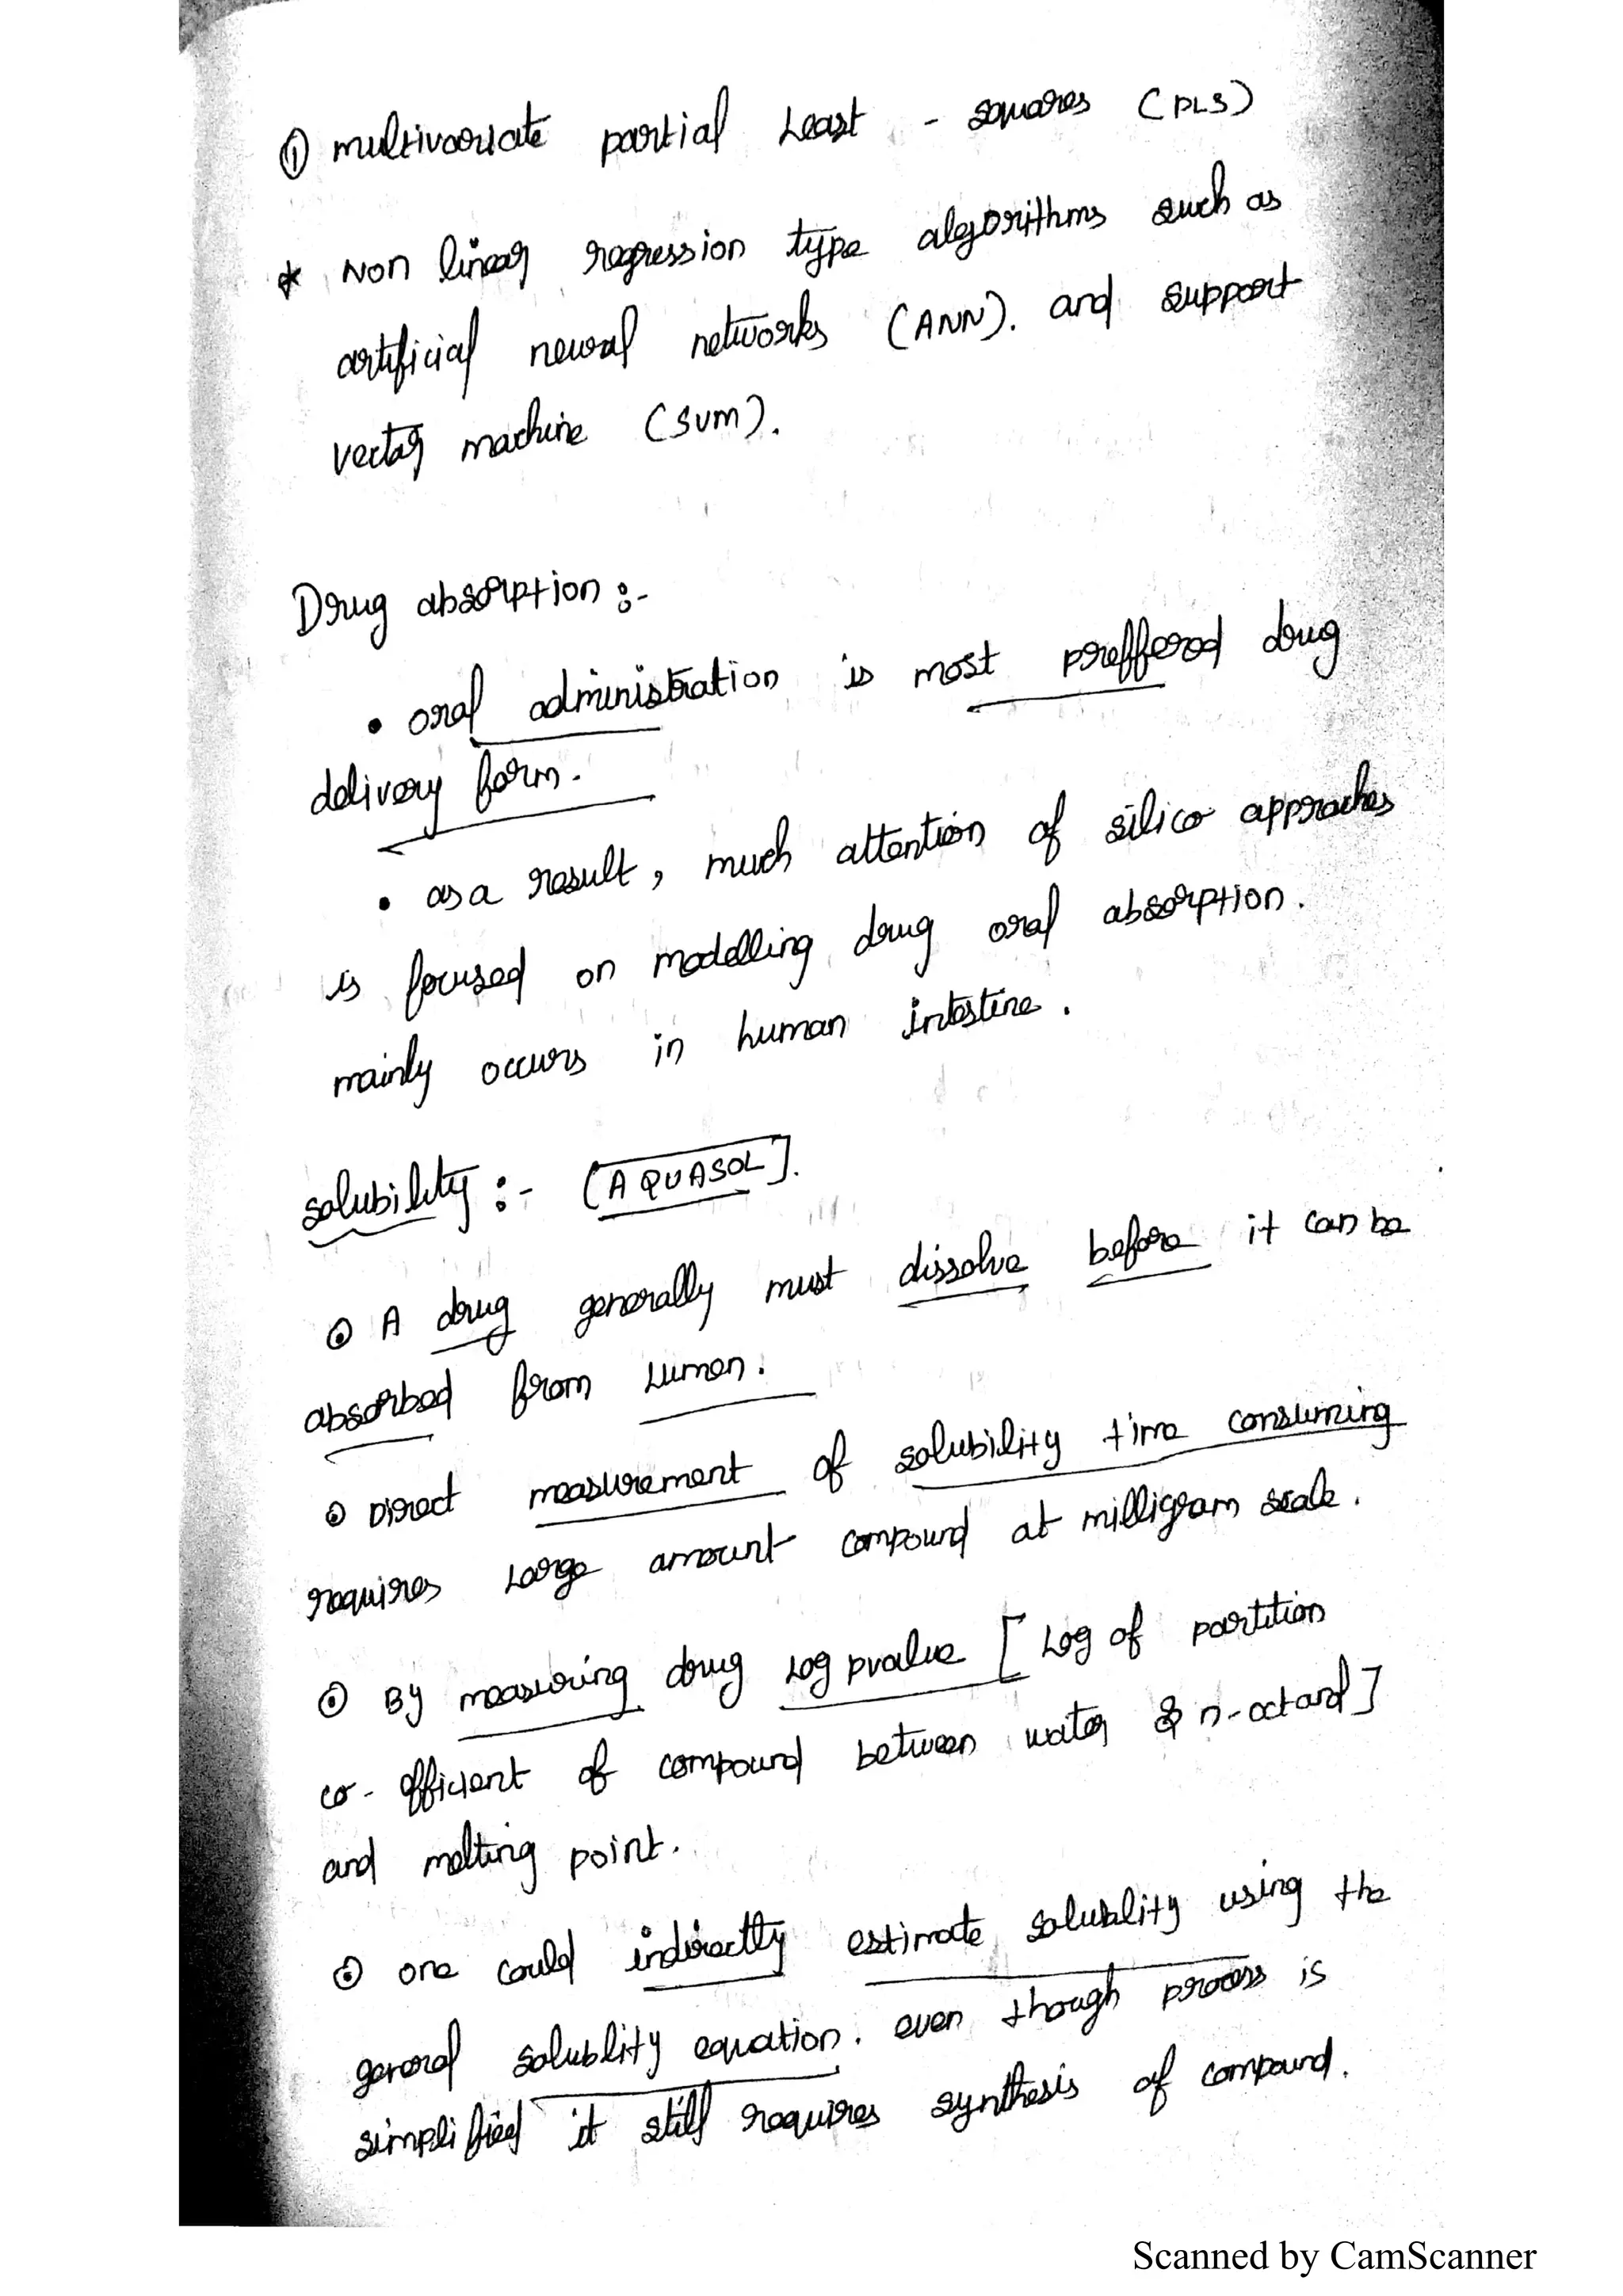 ① multivariate partial Least - squares (PLS)
* Non linear regression type algorithms such as
artificial neural networks (ANN). and support
vector machine (SVM).
Drug absorption :-
• oral administration is most preffered drug
delivery form.
• as a result, much attention of silico approaches
is focused on modelling drug oral absorption.
mainly occurs in human intestine.
solubility :- [AQUASOL].
⊙ A drug generally must dissolve before it can be
absorbed from Lumen.
⊙ Direct measurement of solubility time consuming
requires Large amount compound at milligram scale.
⊙ By measuring drug Log pvalue [Log of partition
co-efficient of compound between water & n-octanol]
and melting point.
⊙ one could indirectly estimate solublity using the
general solublity equation. even though process is
simplified it still requires synthesis of compound.
Scanned by CamScanner